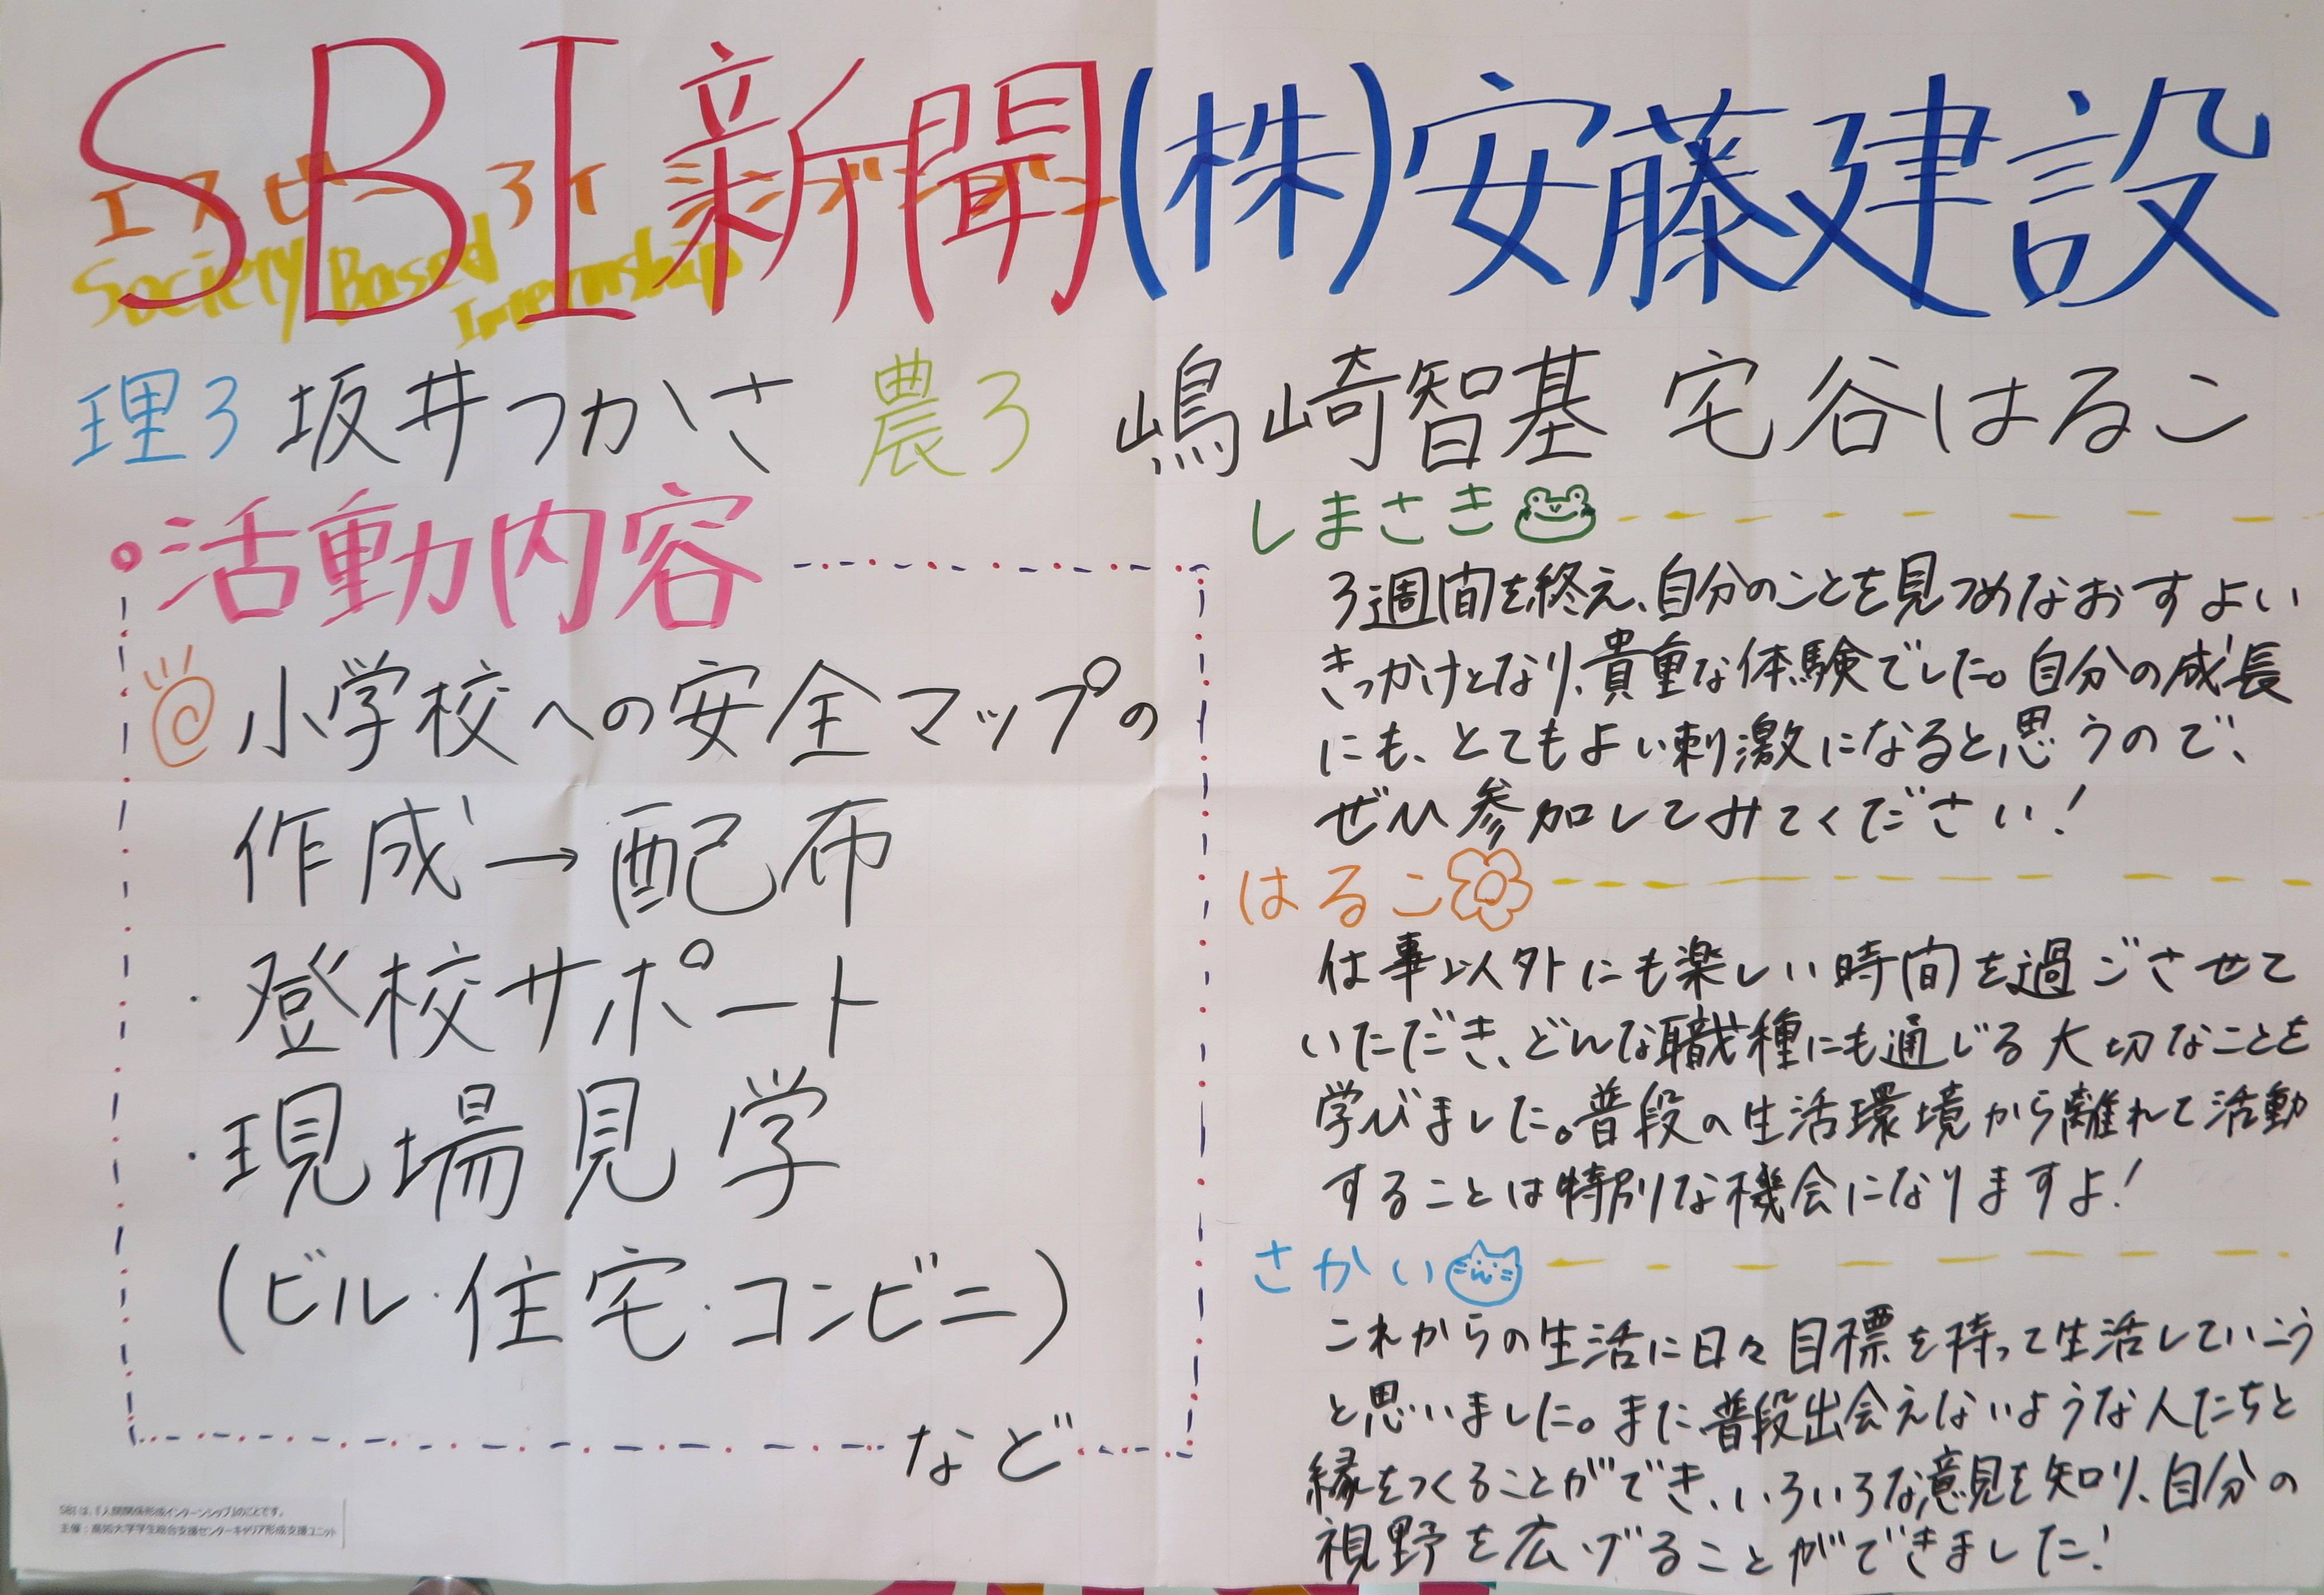 SBI新聞(株)安藤建設
エスビーアイ シンブン
Society Based
Internship
理3 坂井つかさ 農3 嶋崎智基 宅谷はるこ
活動内容
@小学校への安全マップの
作成→配布
・登校サポート
・現場見学
(ビル・住宅・コンビニ)
など
しまさき
3週間を終え、自分のことを見つめなおすよい
きっかけとなり、貴重な体験でした。自分の成長
にも、とてもよい刺激になると思うので、
ぜひ参加してみてください!
はるこ
仕事以外にも楽しい時間を過ごさせて
いただき、どんな職種にも通じる大切なことを
学びました。普段の生活環境から離れて活動
することは特別な機会になりますよ!
さかい
これからの生活に日々目標を持って生活していこう
と思いました。また普段出会えないような人たちと
縁をつくることができ、いろいろな意見を知り、自分の
視野を広げることができました!
SBIは、「人間関係形成インターンシップ」のことです。
主催:高知大学学生総合支援センターキャリア形成支援ユニット